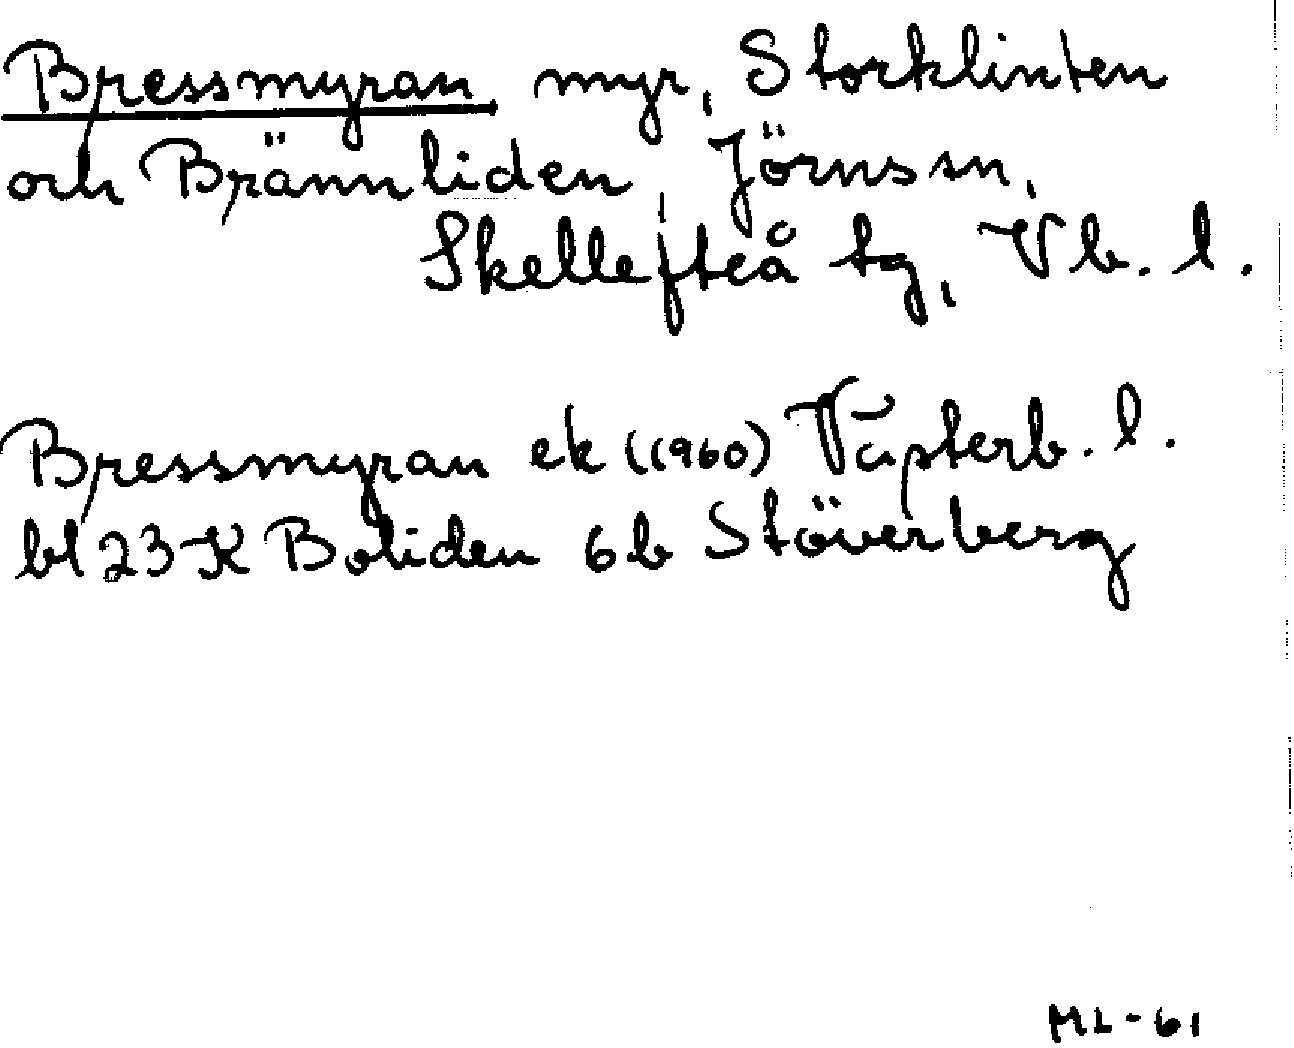 Bressmyran myr, Storklinten
och Brännliden, Jörns sn,
Skellefteå tg, Vb. l.
Bressmyran ek (1960) Västerb. l.
bl 23 K Boliden 6 b Stöverberg
ML-61